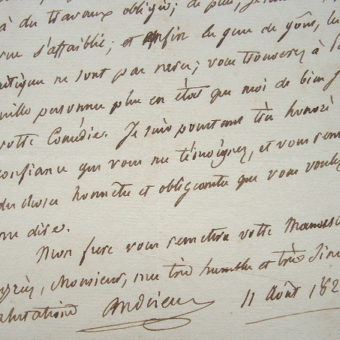 à du travaux obligés; de plus,
vue s'affaiblit; et enfin le genre de
critique ne sont par mes; vous trouverez à
ville personne plus en état que moi de bien
votre Comédie. Je suis pourtant très honoré
confiance que vous me témoignez, et vous
du choses honnêtes et obligeantes que vous voulez
me dire.
Mon frere vous remettra votre
Agréez, Monsieur, mes très humbles et très
salutations
Andrieux
11 Août 182